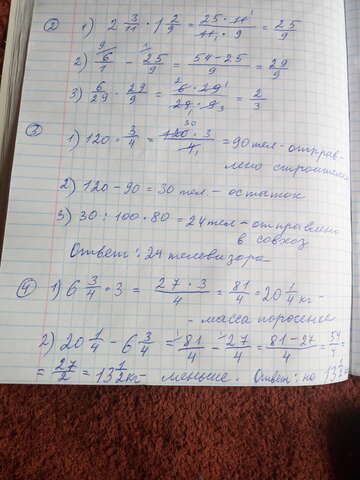 ② 1) 2 3/11 · 1 2/9 = 25 · 11/11 · 9 = 25/9
2) 6/1 - 25/9 = 54 - 25/9 = 29/9
3) 6/29 · 29/9 = 6 · 29/29 · 9 = 2/3
③
1) 120 · 3/4 = 120 · 3/4 = 90 тел - отправ-
лено строителям
2) 120 - 90 = 30 тел - остаток
3) 30 : 100 · 80 = 24 тел - отправлено
в совхоз
Ответ: 24 телевизора
④ 1) 6 3/4 · 3 = 27 · 3/4 = 81/4 = 20 1/4 кг -
- масса поросенка
2) 20 1/4 - 6 3/4 = 81/4 - 27/4 = 81 - 27/4 = 54/4 =
= 27/2 = 13 1/2 кг - меньше. Ответ: на 13